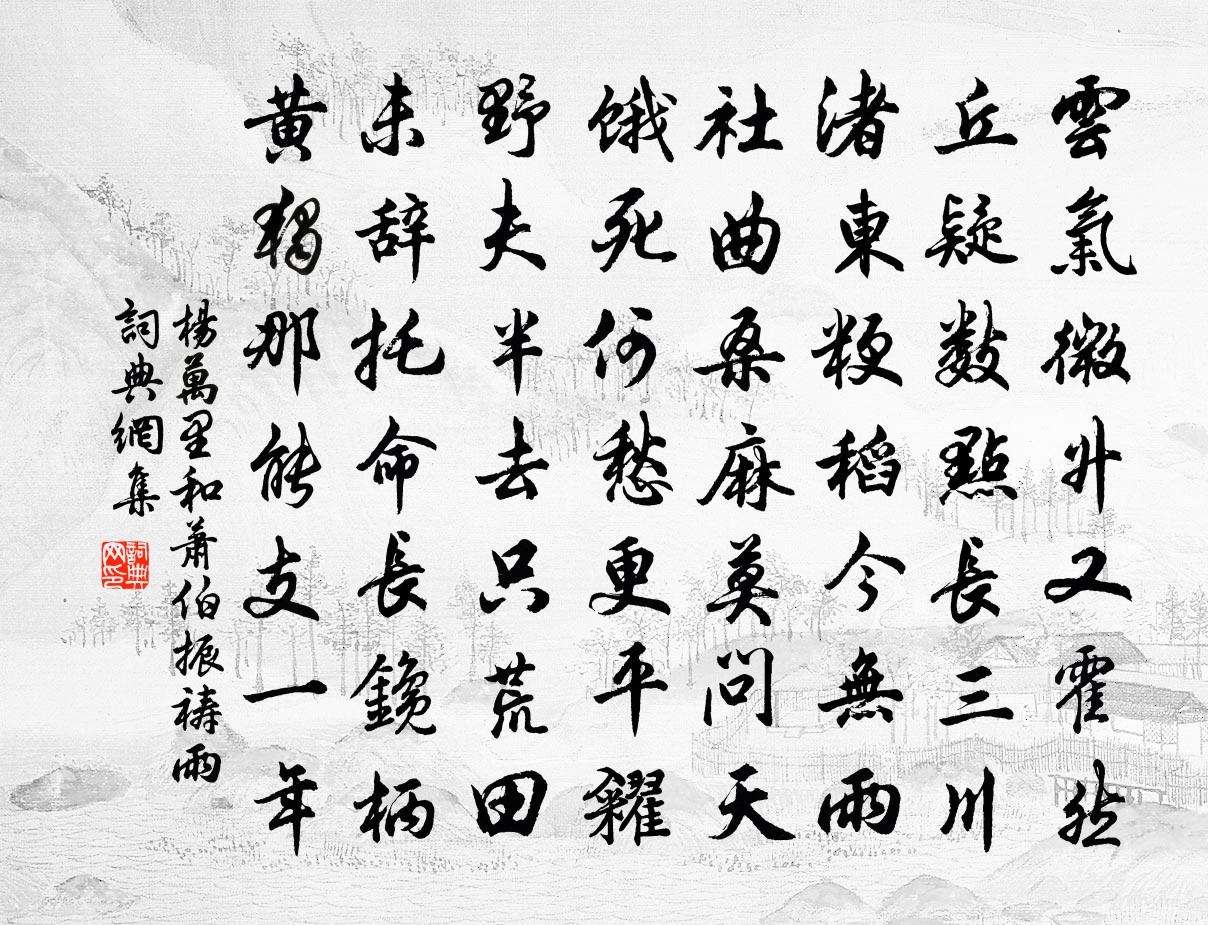 雲氣微升又霍然
丘疑數點長三川
渚東粳稻今無雨
社曲桑麻莫問天
饿死何愁更平糴
野夫半去只荒田
未辞托命長鑱柄
黄獨那能支一年
楊萬里和蕭伯振禱雨
詞典網集
詞典网印